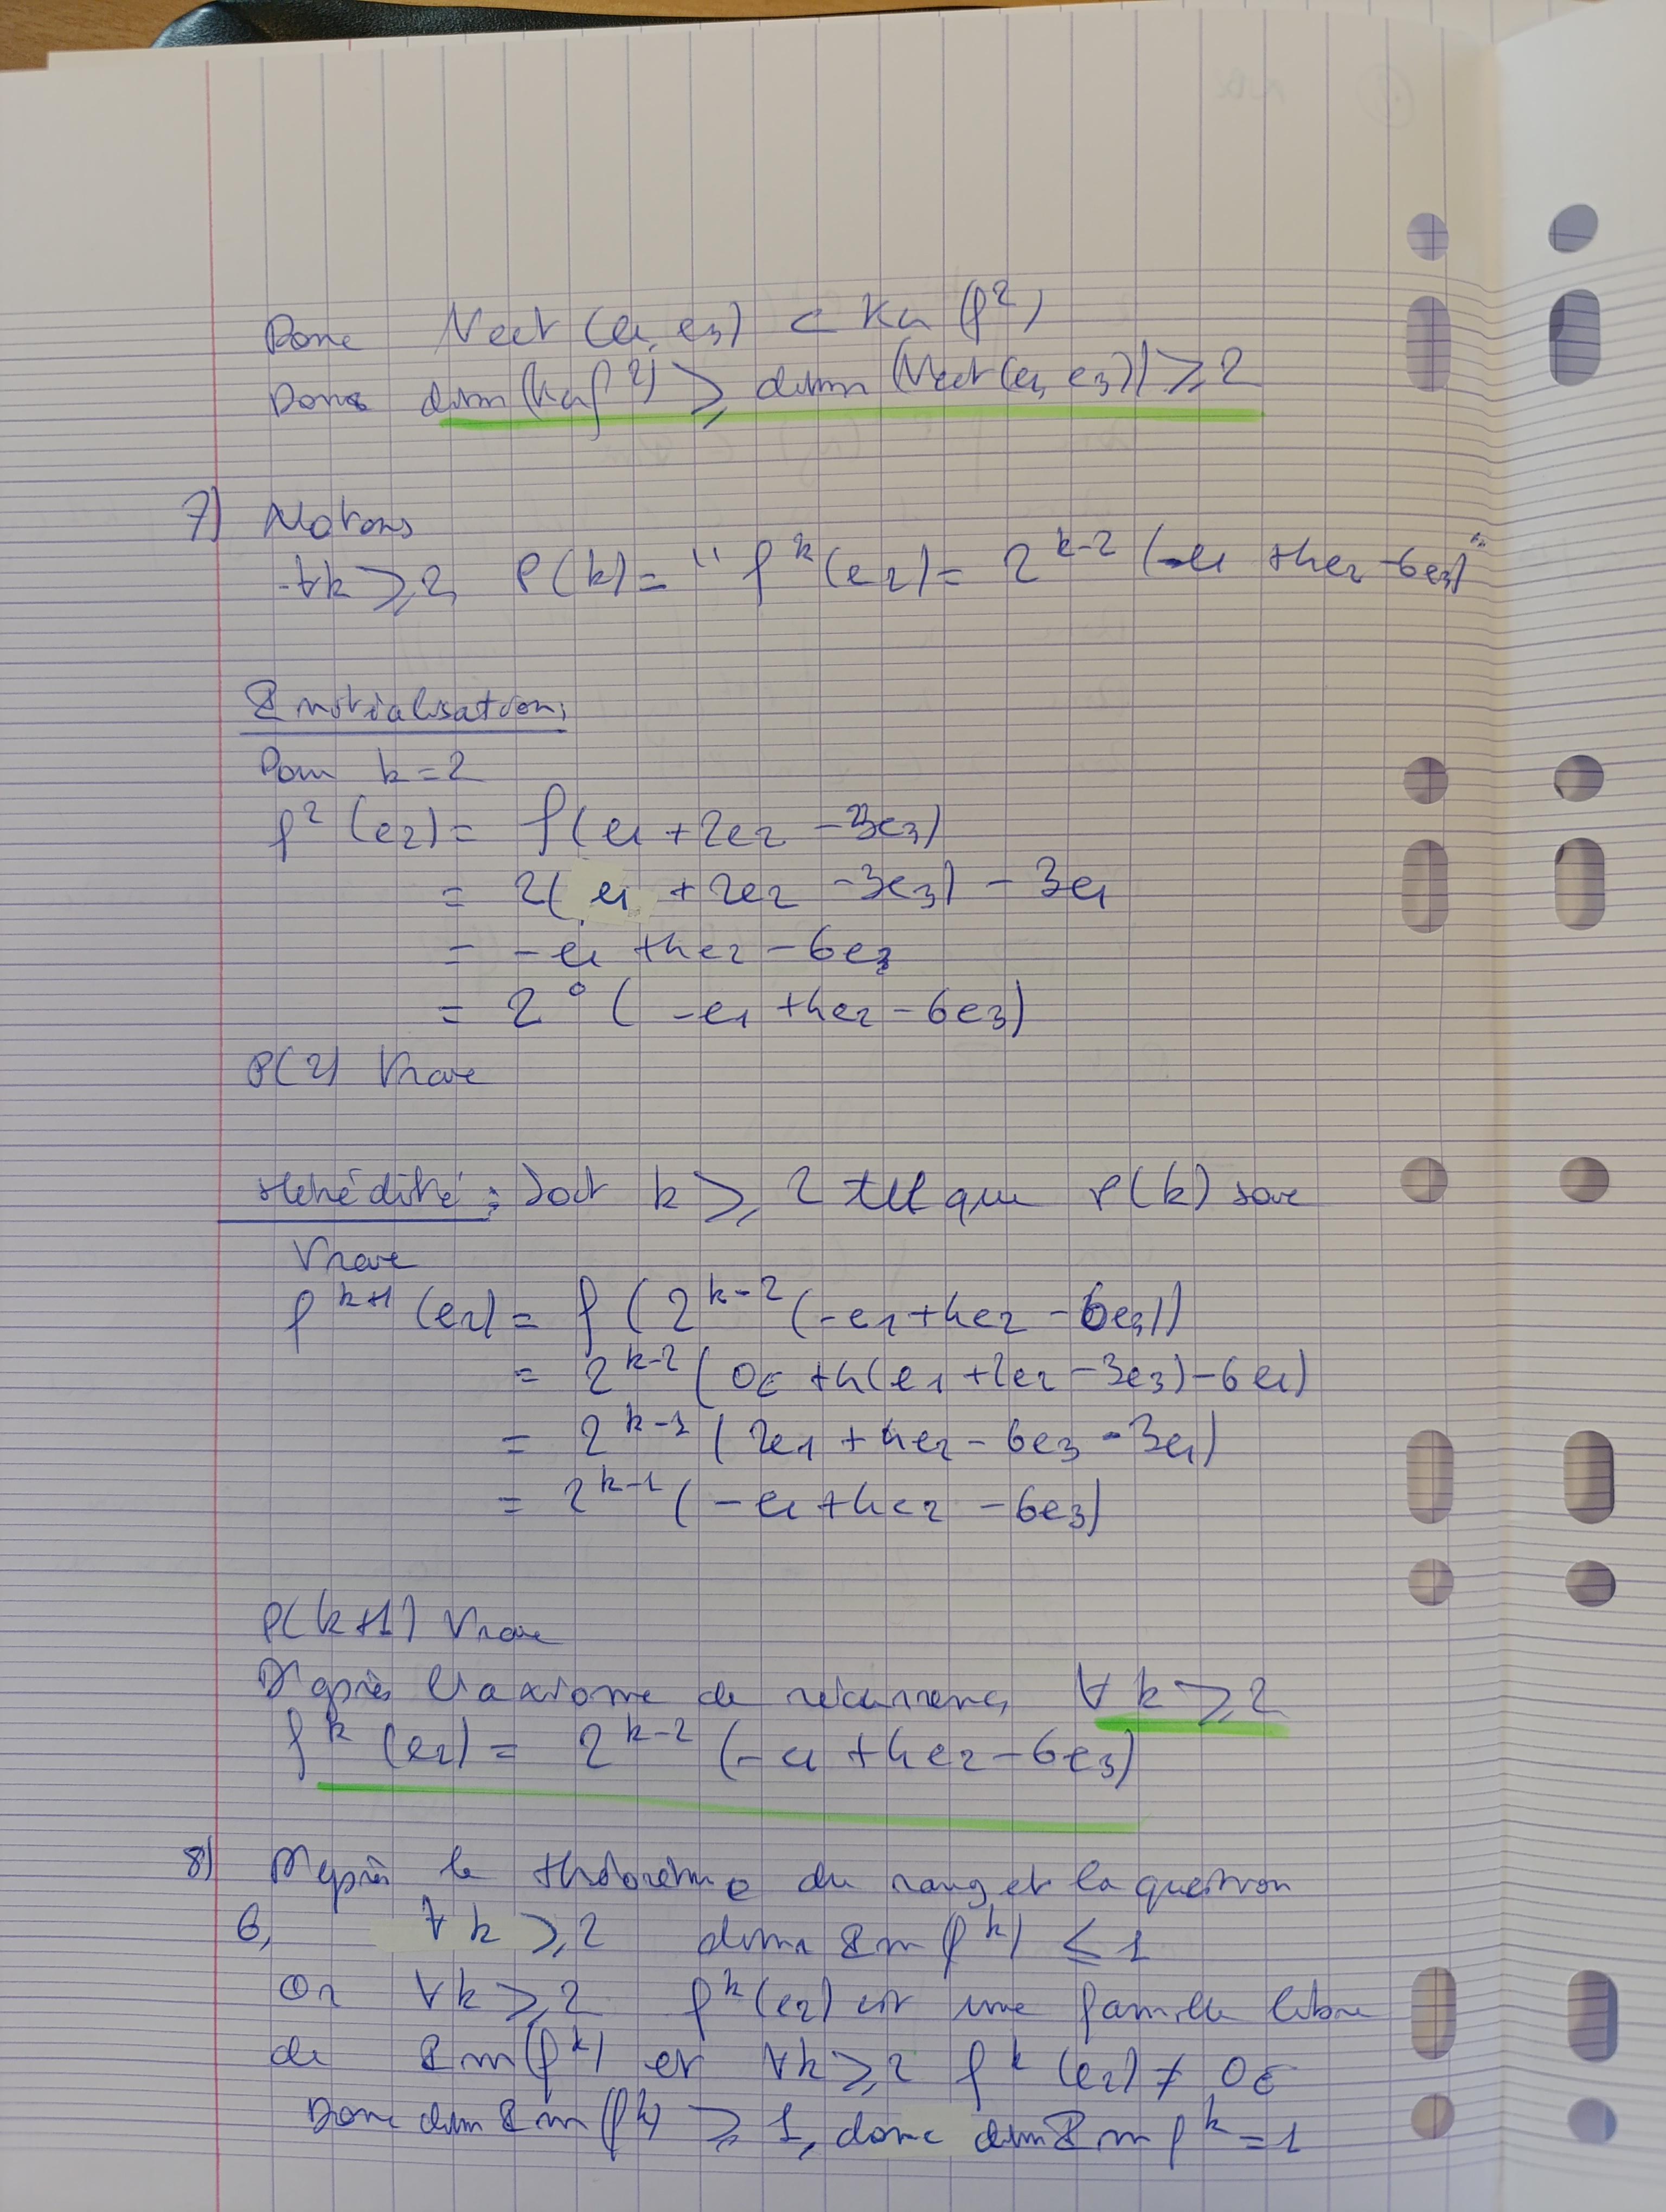 Donc Vect(e1, e3) ⊂ Ker(f²)
Donc dim(Ker f²) ⩾ dim(Vect(e1, e3)) ⩾ 2
7) Notons
∀k ⩾ 2, P(k) = "f^k(e2) = 2^{k-2}(-e1 + 4e2 - 6e3)"
Initialisation,
Pour k = 2
f²(e2) = f(e1 + 2e2 - 3e3)
= 2(e1 + 2e2 - 3e3) - 3e1
= -e1 + 4e2 - 6e3
= 2^0 (-e1 + 4e2 - 6e3)
P(2) Vraie
Hérédité : Soit k ⩾ 2 tel que P(k) soit
Vraie
f^{k+1}(e2) = f(2^{k-2}(-e1 + 4e2 - 6e3))
= 2^{k-2}(0E + 4(e1 + 2e2 - 3e3) - 6e1)
= 2^{k-1}(2e1 + 4e2 - 6e3 - 3e1)
= 2^{k-1}(-e1 + 4e2 - 6e3)
P(k+1) Vraie
D'après l'axiome de récurrence, ∀k ⩾ 2
f^k(e2) = 2^{k-2}(-e1 + 4e2 - 6e3)
8) D'après le théorème du rang et la question
6, ∀k ⩾ 2 dim Im f^k) ⩽ 1
Or ∀k ⩾ 2 f^k(e2) est une famille libre
de Im(f^k) et ∀k ⩾ 2 f^k(e2) ≠ 0E
Donc dim Im(f^k) ⩾ 1, donc dim Im f^k = 1